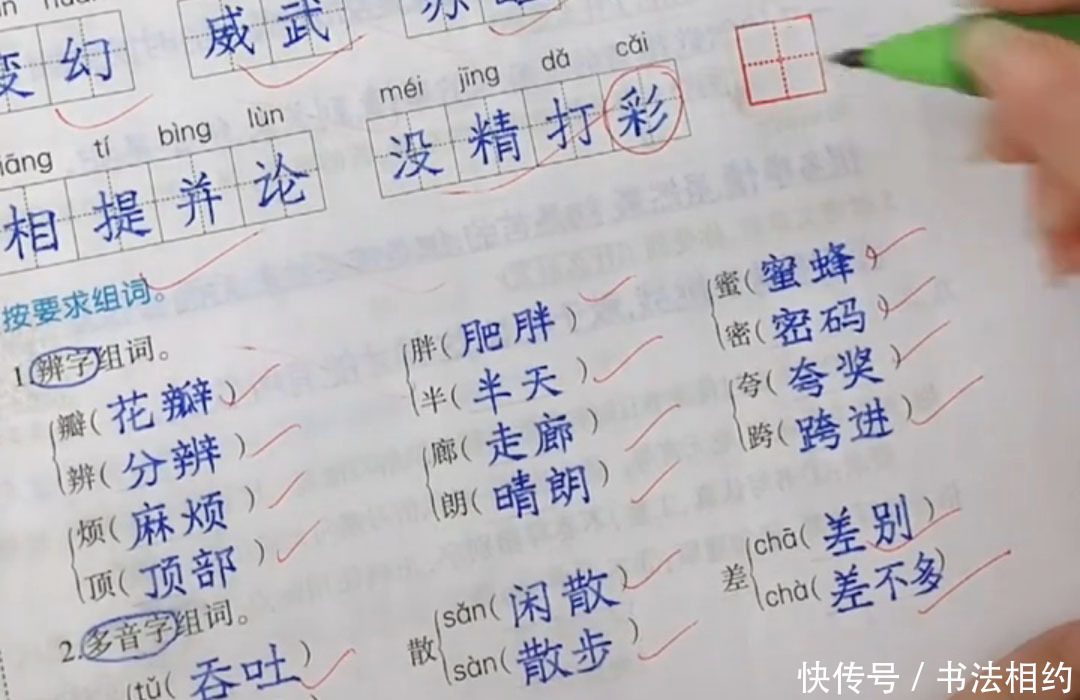 变幻 威武
méi jīng dǎ cǎi
tí bìng lùn
没精打彩
相提并论
按要求组词。
1.辨字组词。
瓣(花瓣)
辨(分辨)
烦(麻烦)
顶(顶部)
胖(肥胖)
半(半天)
廊(走廊)
朗(晴朗)
蜜(蜜蜂)
密(密码)
夸(夸奖)
跨(跨进)
2.多音字组词。
tǔ(吞吐)
散
sǎn(闲散)
sàn(散步)
差
chā(差别)
chà(差不多)
快传号 / 书法相约